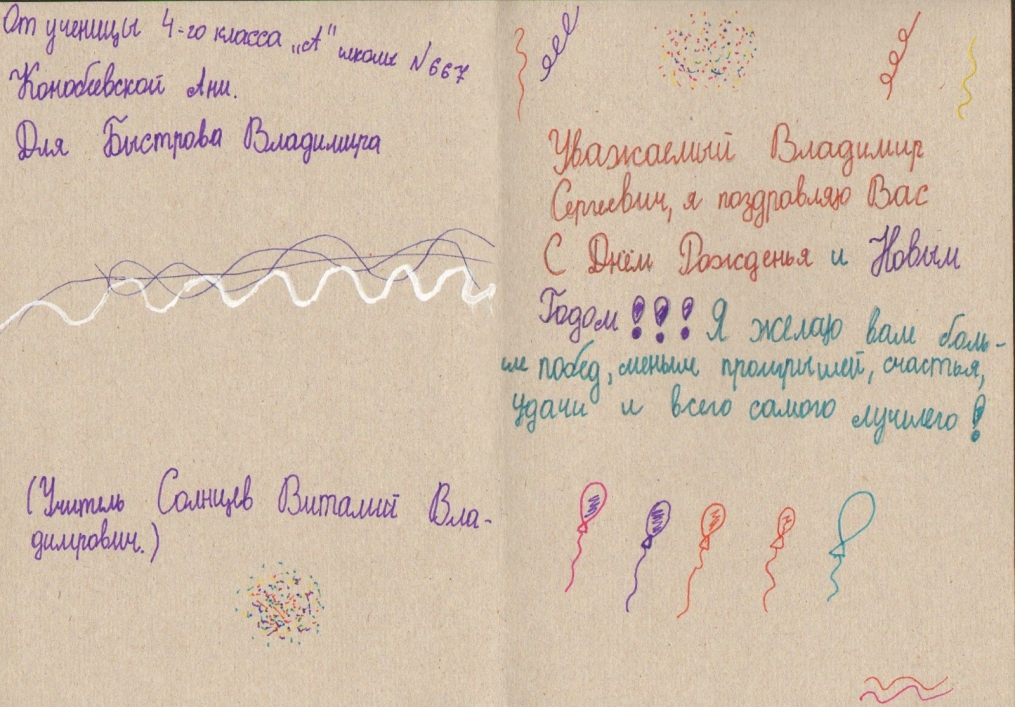 От ученицы 4-го класса „А" школы №667
Конобеевской Ани.
Для Быстрова Владимира
(Учитель Солнцев Виталий Вла-
димирович.)
Уважаемый Владимир
Сергеевич, я поздравляю Вас
С Днём Рожденья и Новым
Годом!!! Я желаю вам боль-
ше побед, меньше проигрышей, счастья,
удачи и всего самого лучшего!